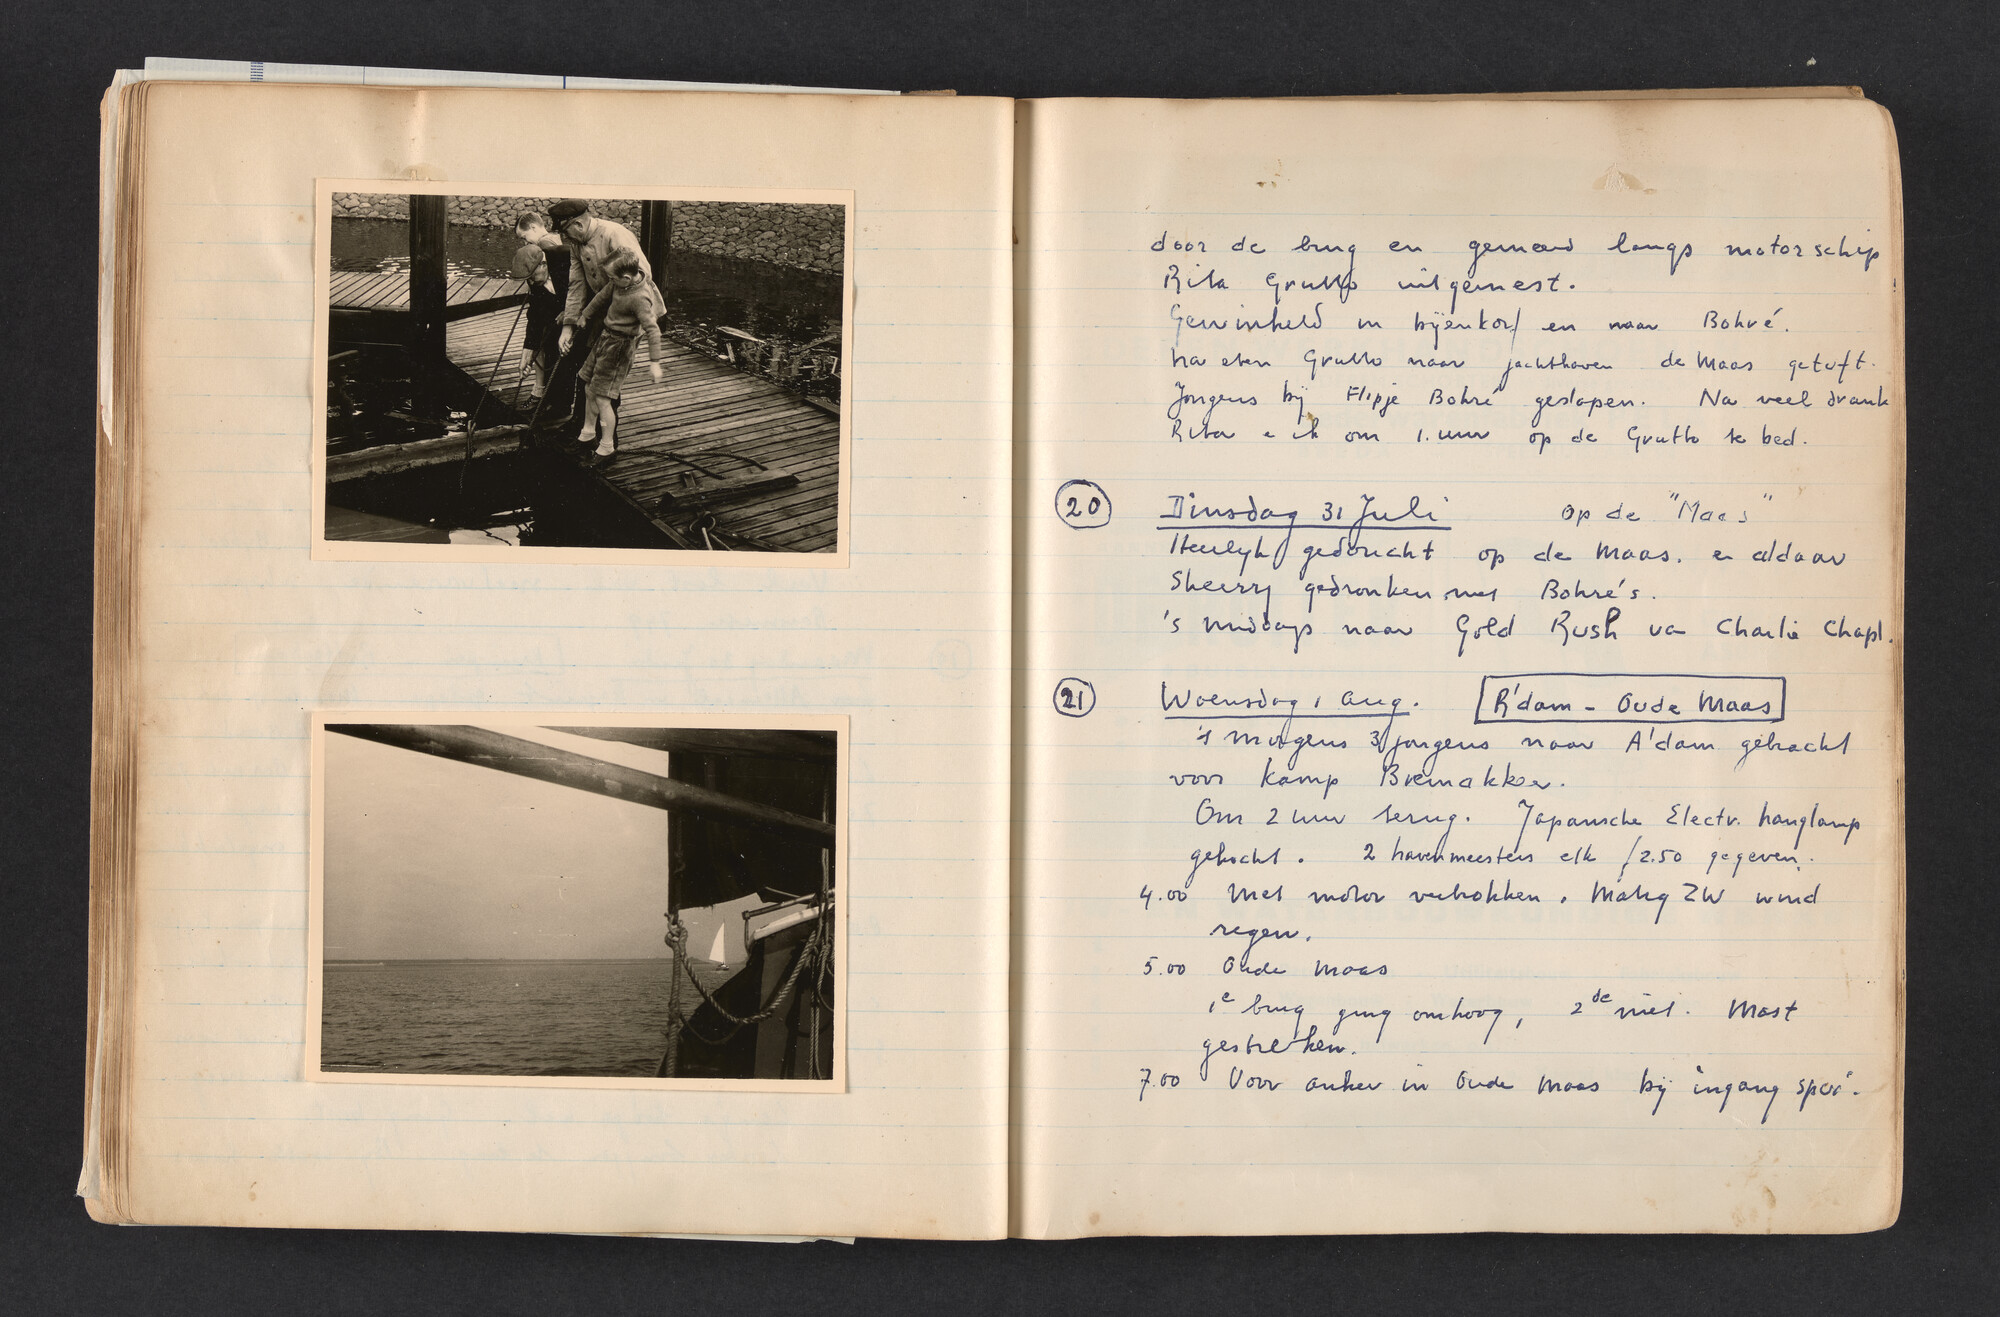 door de brug en gemeerd langs motorschip
Rita Grutto uitgemest.
Gewinkeld in bijenkorf en naar Bohré.
Na eten Grutto naar jachthaven de Maas getuft.
Jongens bij Flipje Bohré geslapen. Na veel drank
Rita e ik om 1. uur op de Grutto te bed.
20 Dinsdag 31 Juli op de "Maas"
Heerlijk gedoucht op de Maas. en aldaar
Sherry gedronken met Bohré's.
's middags naar Gold Rush va Charlie Chapl.
21 Woensdag 1 Aug. R'dam - Oude Maas
's morgens 3 jongens naar A'dam gebracht
voor kamp Bremakker.
Om 2 uur terug. Japansche Electr. hanglamp
gekocht. 2 havenmeesters elk ƒ2.50 gegeven.
4.00 Met motor vertrokken. Matig ZW wind
regen.
5.00 Oude Maas
1e brug ging omhoog, 2de niet. Mast
gestreken.
7.00 Voor anker in Oude Maas bij ingang